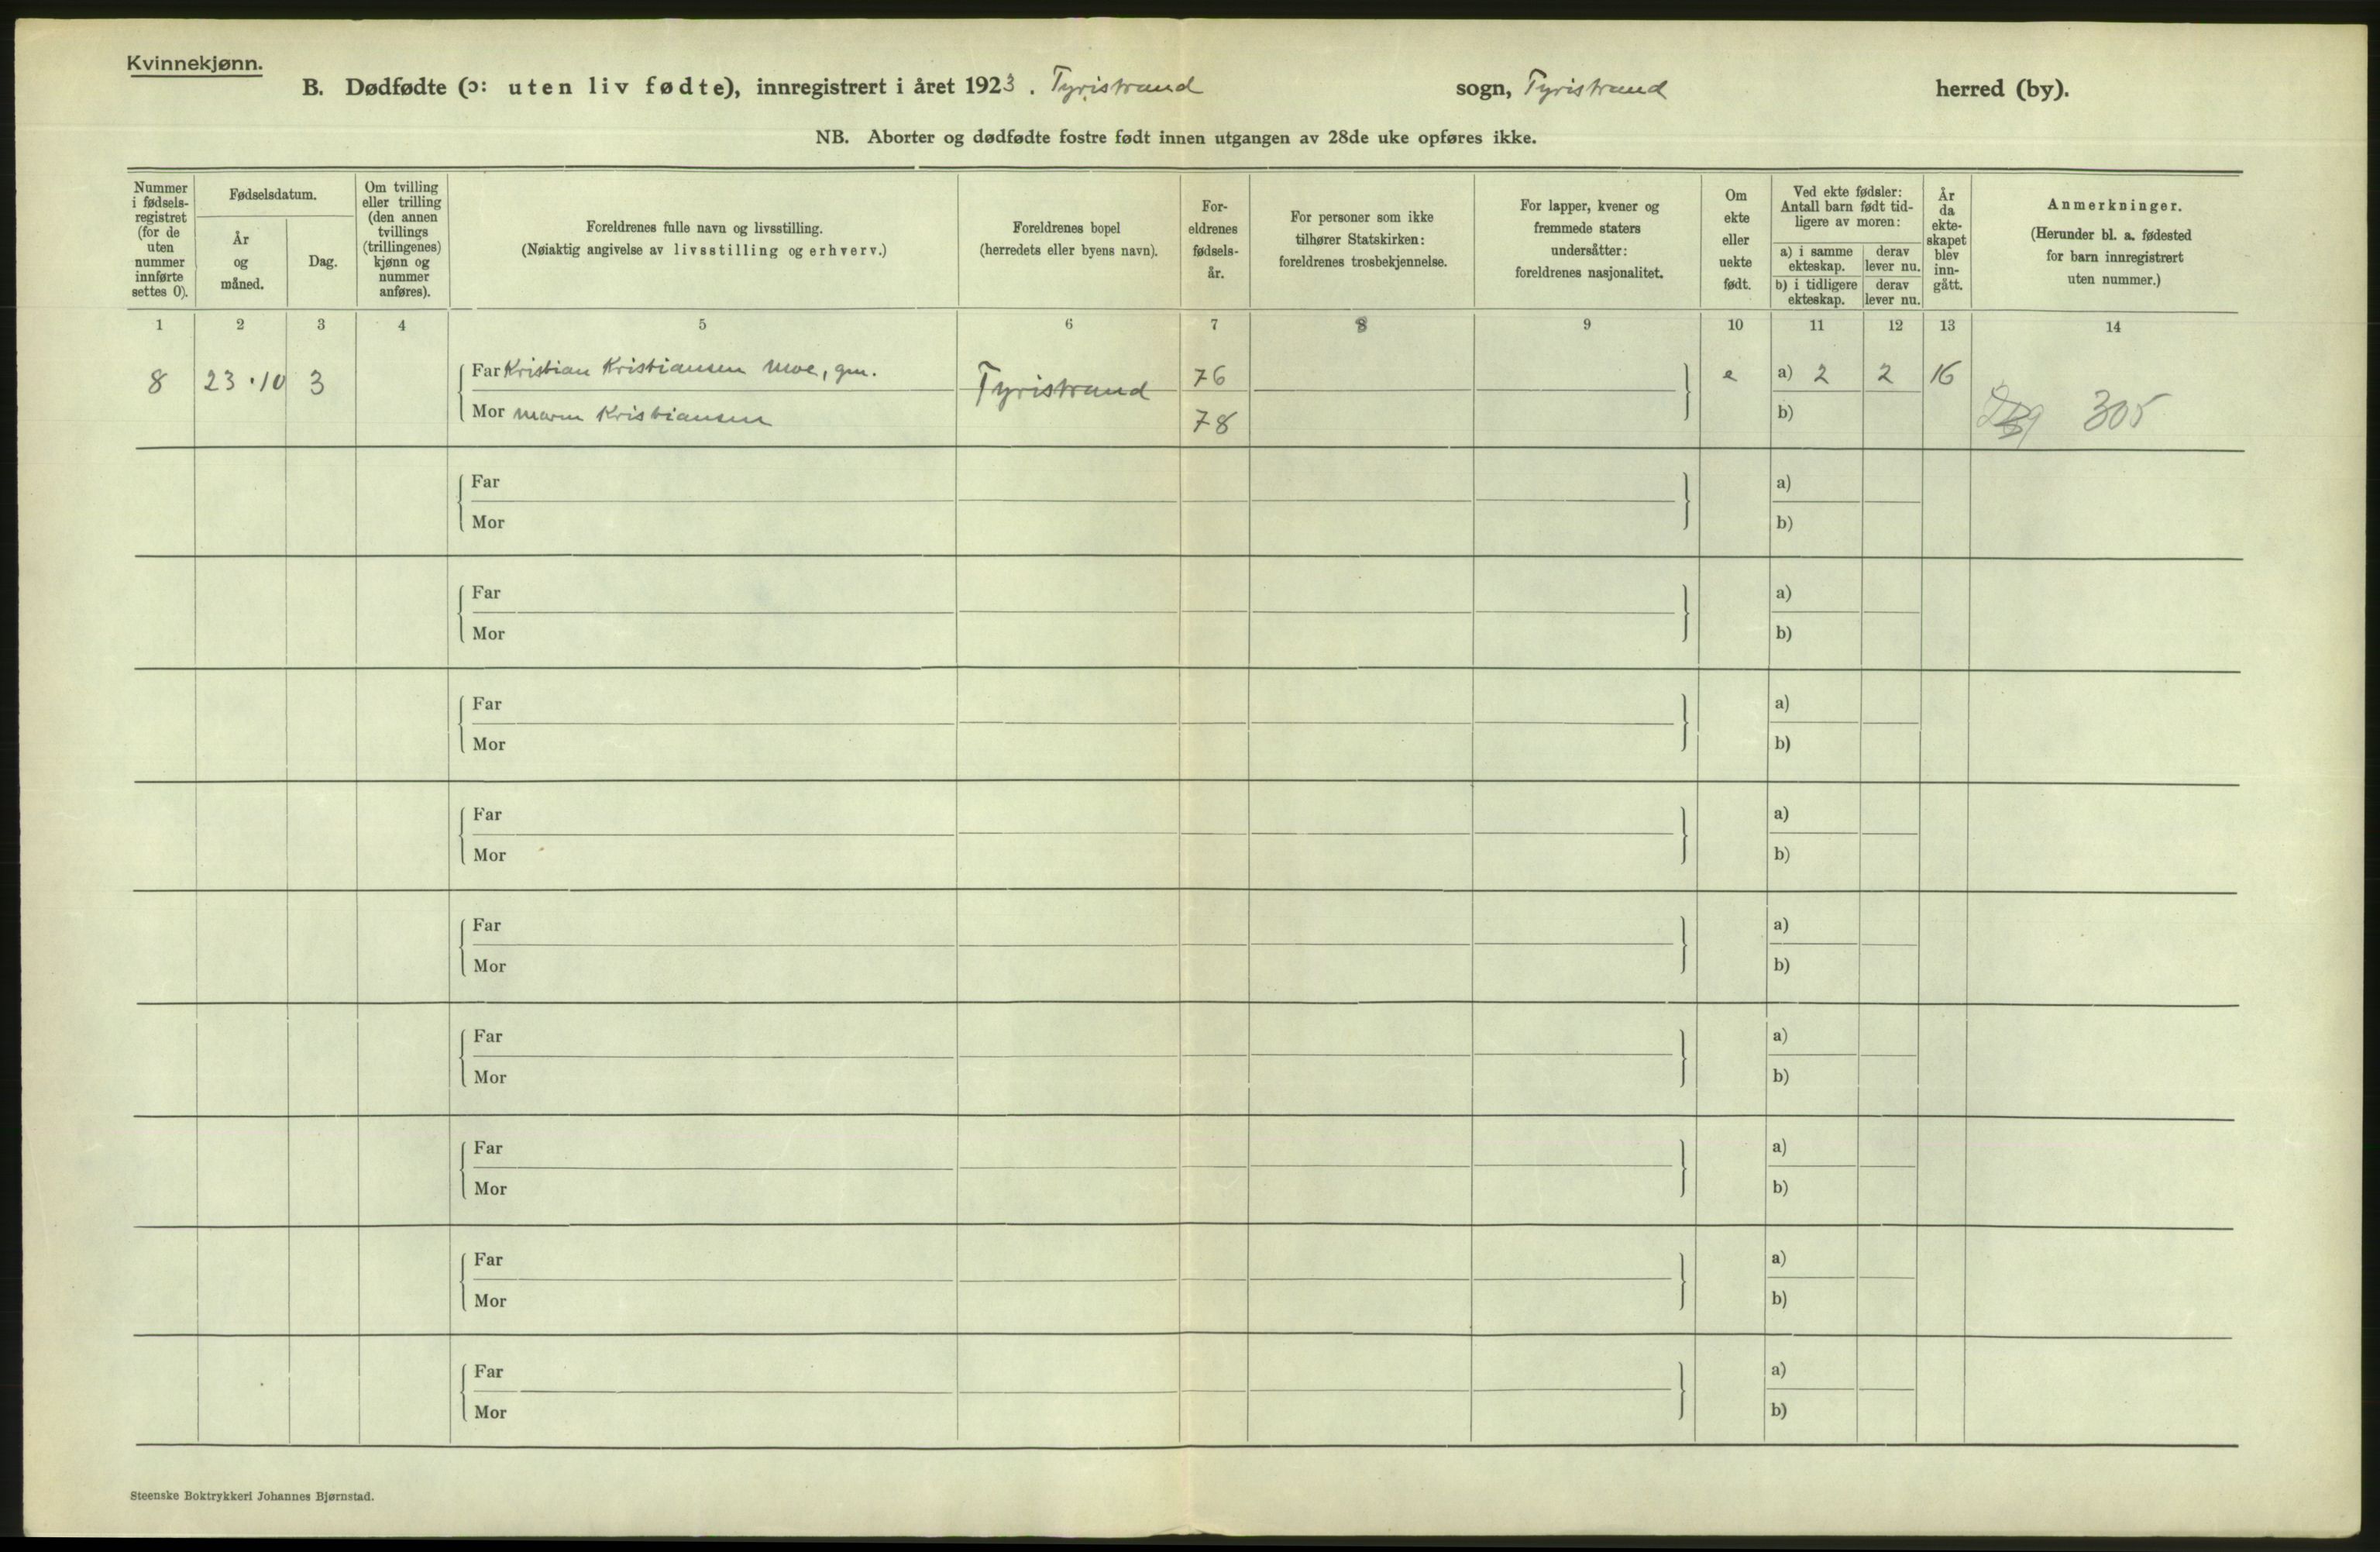 Kvinnekjønn.
B. Dødfødte (ɔ: uten liv fødte), innregistrert i året 1923. Tyristrand sogn, Tyristrand herred (by).
NB. Aborter og dødfødte fostre født innen utgangen av 28de uke opføres ikke.
Nummer i fødsels-registret (for de uten nummer innførte settes 0).
Fødselsdatum.
År og måned.
Dag.
Om tvilling eller trilling (den annen tvillings (trillingenes) kjønn og nummer anføres).
Foreldrenes fulle navn og livsstilling.
(Nøiaktig angivelse av livsstilling og erhverv.)
Foreldrenes bopel
(herredets eller byens navn).
For-eldrenes fødsels-år.
For personer som ikke tilhører Statskirken: foreldrenes trosbekjennelse.
For lapper, kvener og fremmede staters undersåtter: foreldrenes nasjonalitet.
Om ekte eller uekte født.
Ved ekte fødsler: Antall barn født tid-ligere av moren:
a) i samme ekteskap.
derav lever nu.
b) i tidligere ekteskap.
derav lever nu.
År da ekte-skapet blev inn-gått.
Anmerkninger.
(Herunder bl. a. fødested for barn innregistrert uten nummer.)
1 2 3 4 5 6 7 8 9 10 11 12 13 14
8 23.10 3 Far Kristian Kristiansen Moe, gm. Tyristrand 76 e a) 2 2 16
Mor Kristiansen 78 b) 305
Far a)
Mor b)
Far a)
Mor b)
Far a)
Mor b)
Far a)
Mor b)
Far a)
Mor b)
Far a)
Mor b)
Far a)
Mor b)
Far a)
Mor b)
Far a)
Mor b)
Steenske Boktrykkeri Johannes Bjørnstad.